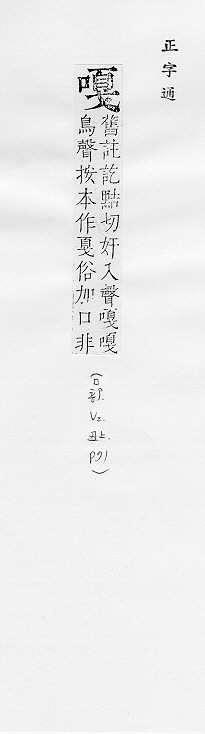 正字通
嘎
舊註訖黠切奸入聲嘎嘎
鳥聲按本作戛俗加口非
(口部.V2.丑上.P91)